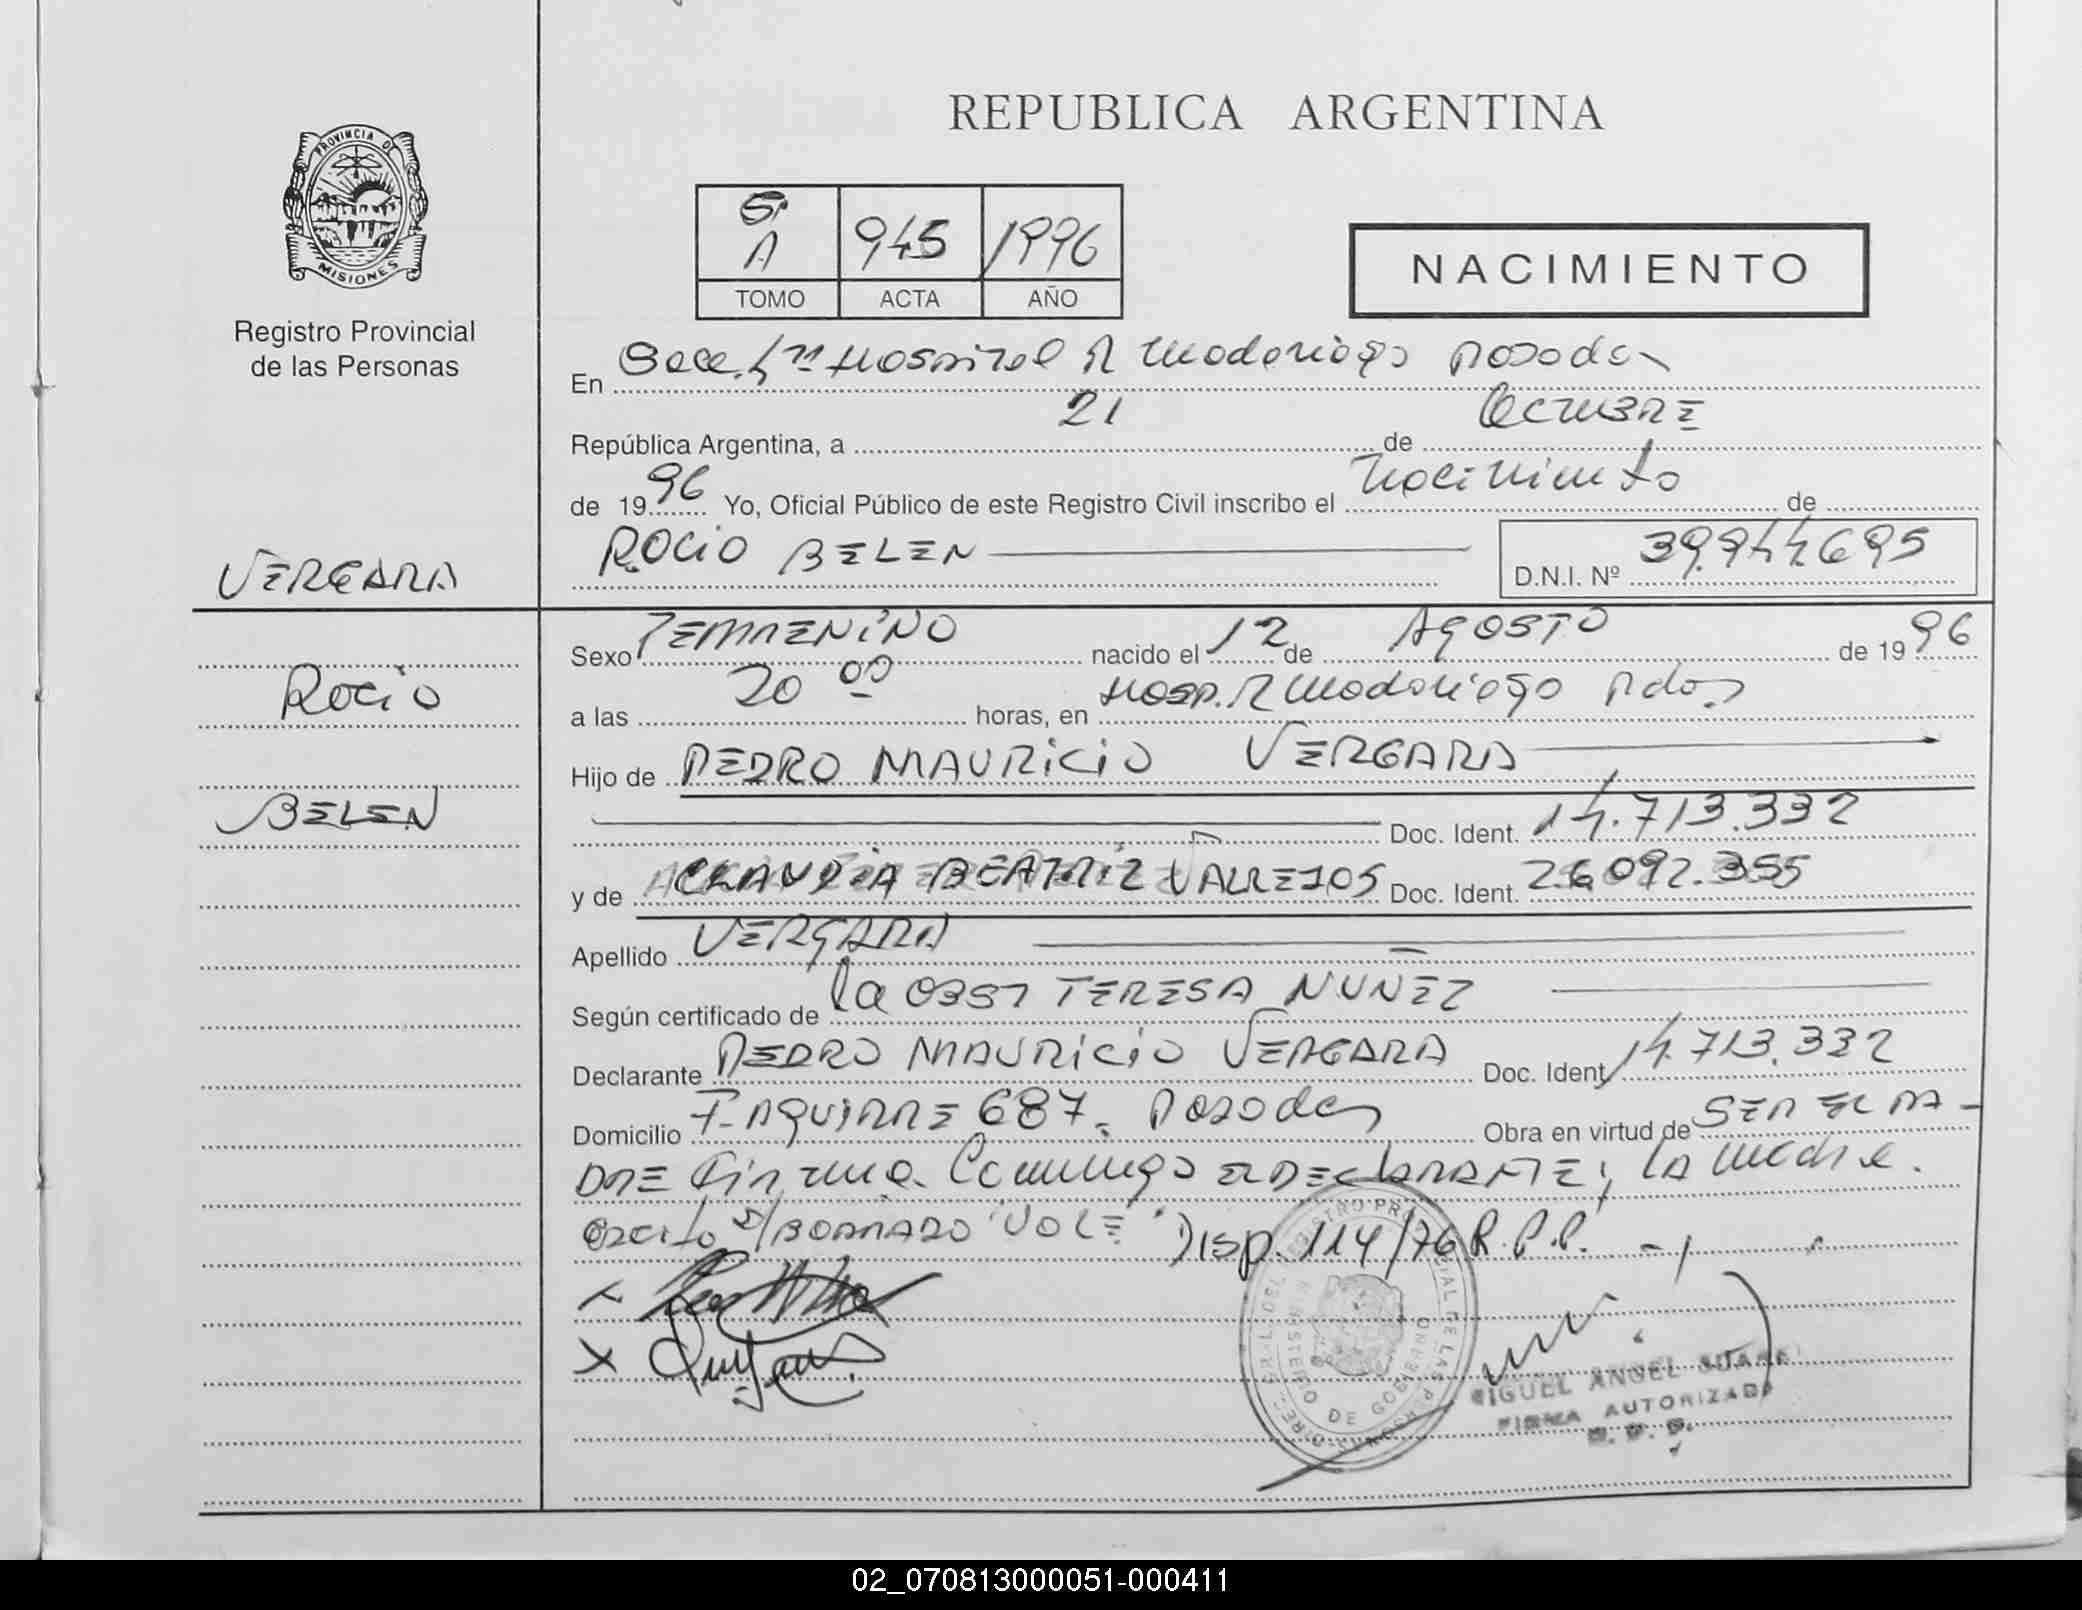 REPUBLICA ARGENTINA
PROVINCIA DE
MISIONES
Registro Provincial
de las Personas
A 945 1996
TOMO ACTA AÑO
NACIMIENTO
En Hospital R Madariaga Posadas
República Argentina, a 21 de Octubre
de 1996 Yo, Oficial Público de este Registro Civil inscribo el nacimiento de
VERGARA
ROCIO BELEN
D.N.I. Nº 39.944.695
Sexo FEMMENINO nacido el 12 de AGOSTO de 1996
Rocio
a las 20 00 horas, en Hosp. R Madariaga Pdas
Hijo de PEDRO MAURICIO VERGARA
BELEN
Doc. Ident. 14.713.332
y de CLAUDIA BEATRIZ VALLEJOS Doc. Ident. 26.092.355
Apellido VERGARA
Según certificado de la OBST TERESA NUÑEZ
Declarante PEDRO MAURICIO VERGARA Doc. Ident. 14.713.332
Domicilio F. AGUIRRE 687. Posadas Obra en virtud de SER EL PA-
DRE Firma Conmigo EL DECLARANTE y LA madre.
S/BORRADO "VALE" Disp. 114/76 R.P.P.
MIGUEL ANGEL
FIRMA AUTORIZADA
02_070813000051-000411